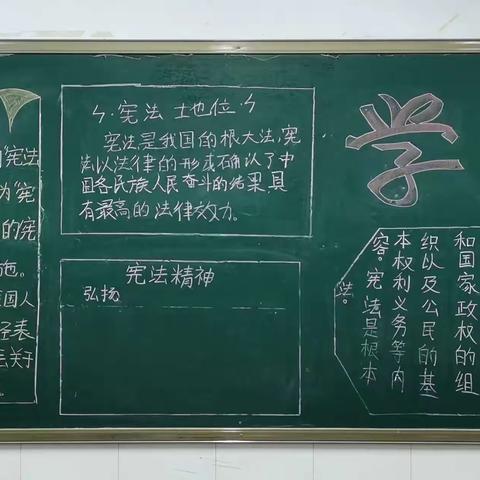 宪法
为宪
的宪
施。
国人
表
关于
ㄣ·宪法 地位·ㄣ
宪法是我国的根大法,宪
法以法律的形式确认了中
国各民族人民奋斗的结果,具
有最高的法律效力。
宪法精神
弘扬
学
和国家政权的组
织以及公民的基
本权利义务等内
容。宪法是根本
法。